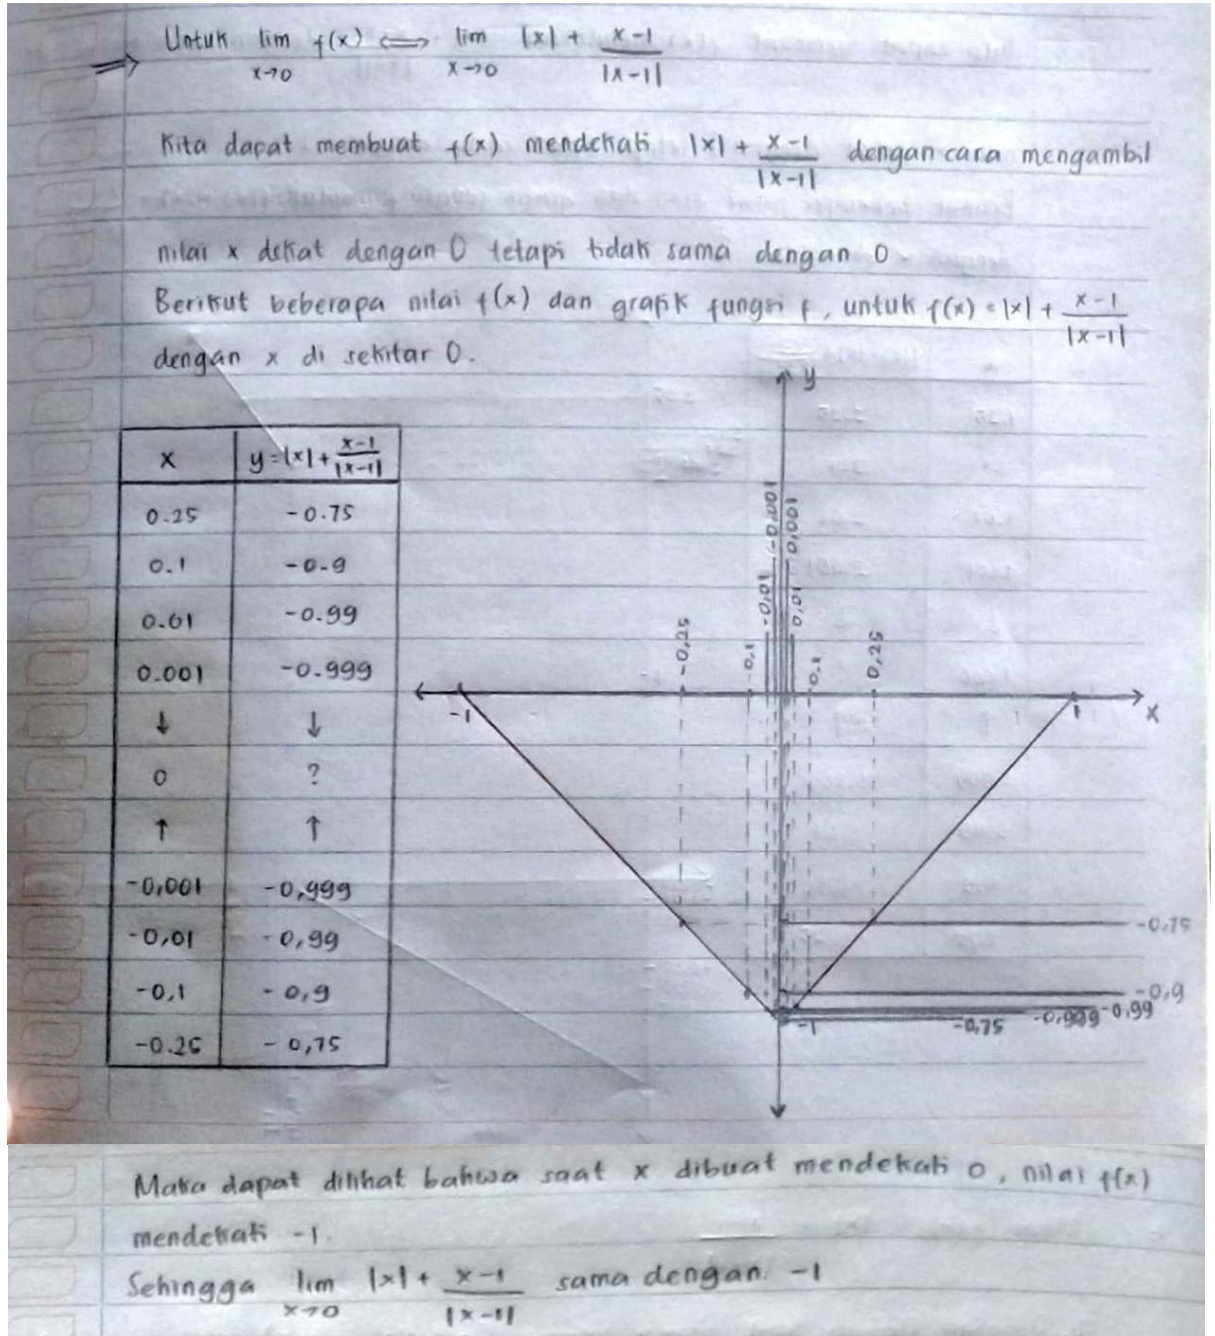 ⇒ Untuk lim x→0 f(x) ⟺ lim x→0 |x| + (x-1)/|x-1|
Kita dapat membuat f(x) mendekati |x| + (x-1)/|x-1| dengan cara mengambil
nilai x dekat dengan 0 tetapi tidak sama dengan 0.
Berikut beberapa nilai f(x) dan grafik fungsi f, untuk f(x) = |x| + (x-1)/|x-1|
dengan x di sekitar 0.
x y=|x|+(x-1)/|x-1|
0.25 -0.75
0.1 -0.9
0.01 -0.99
0.001 -0.999
↓ ↓
0 ?
↑ ↑
-0,001 -0,999
-0,01 -0,99
-0,1 -0,9
-0.25 -0,75
y
-0,25
-0,1
-0,01
-0,001
0,001
0,01
0,1
0,25
-1
1
x
-0,75
-0,9
-0,99
-0,999
-0,75
-1
Maka dapat dilihat bahwa saat x dibuat mendekati 0, nilai f(x)
mendekati -1.
Sehingga lim x→0 |x| + (x-1)/|x-1| sama dengan -1